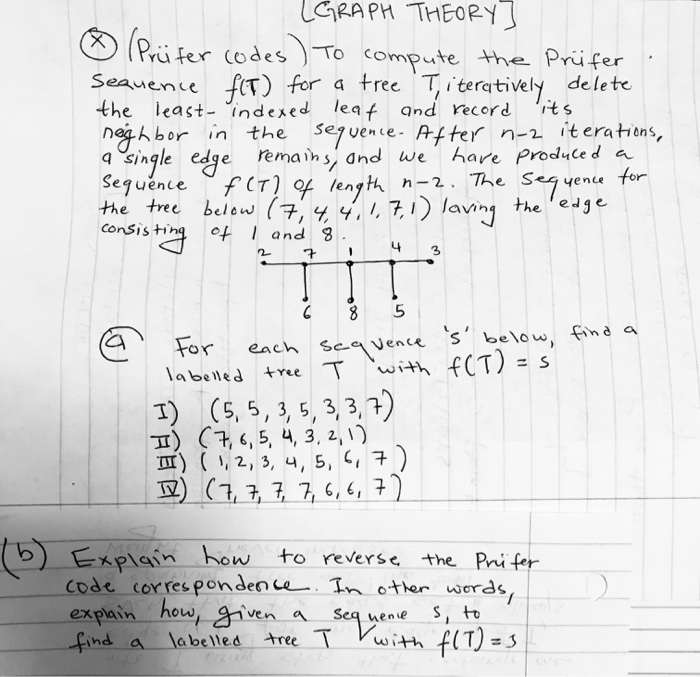 [GRAPH THEORY]
(X) (Prüfer codes) To compute the Prüfer
Sequence f(T) for a tree T, iteratively delete
the least-indexed leaf and record its
neighbor in the sequence. After n-2 iterations,
a single edge remains, and we have produced a
Sequence f(T) of length n-2. The Sequence for
the tree below (7, 4, 4, 1, 7, 1) laving the edge
consisting of 1 and 8.
2 7 1 4 3
6 8 5
(a) For each sequence 's' below, find a
labelled tree T with f(T) = s
I) (5, 5, 3, 5, 3, 3, 7)
II) (7, 6, 5, 4, 3, 2, 1)
III) (1, 2, 3, 4, 5, 6, 7)
IV) (7, 7, 7, 7, 6, 6, 7)
(b) Explain how to reverse the Prüfer
code correspondence. In other words,
explain how, given a sequence s, to
find a labelled tree T with f(T) = s